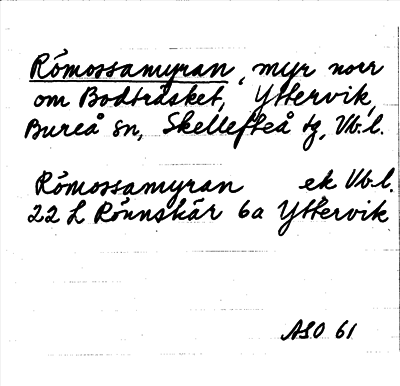 Römossamyran, myr norr
om Bodträsket, Yttervik,
Bureå sn, Skellefteå tg, Vb.l.
Römossamyran ek Vb.l.
22 L Rönnskär 6a Yttervik
ASO 61